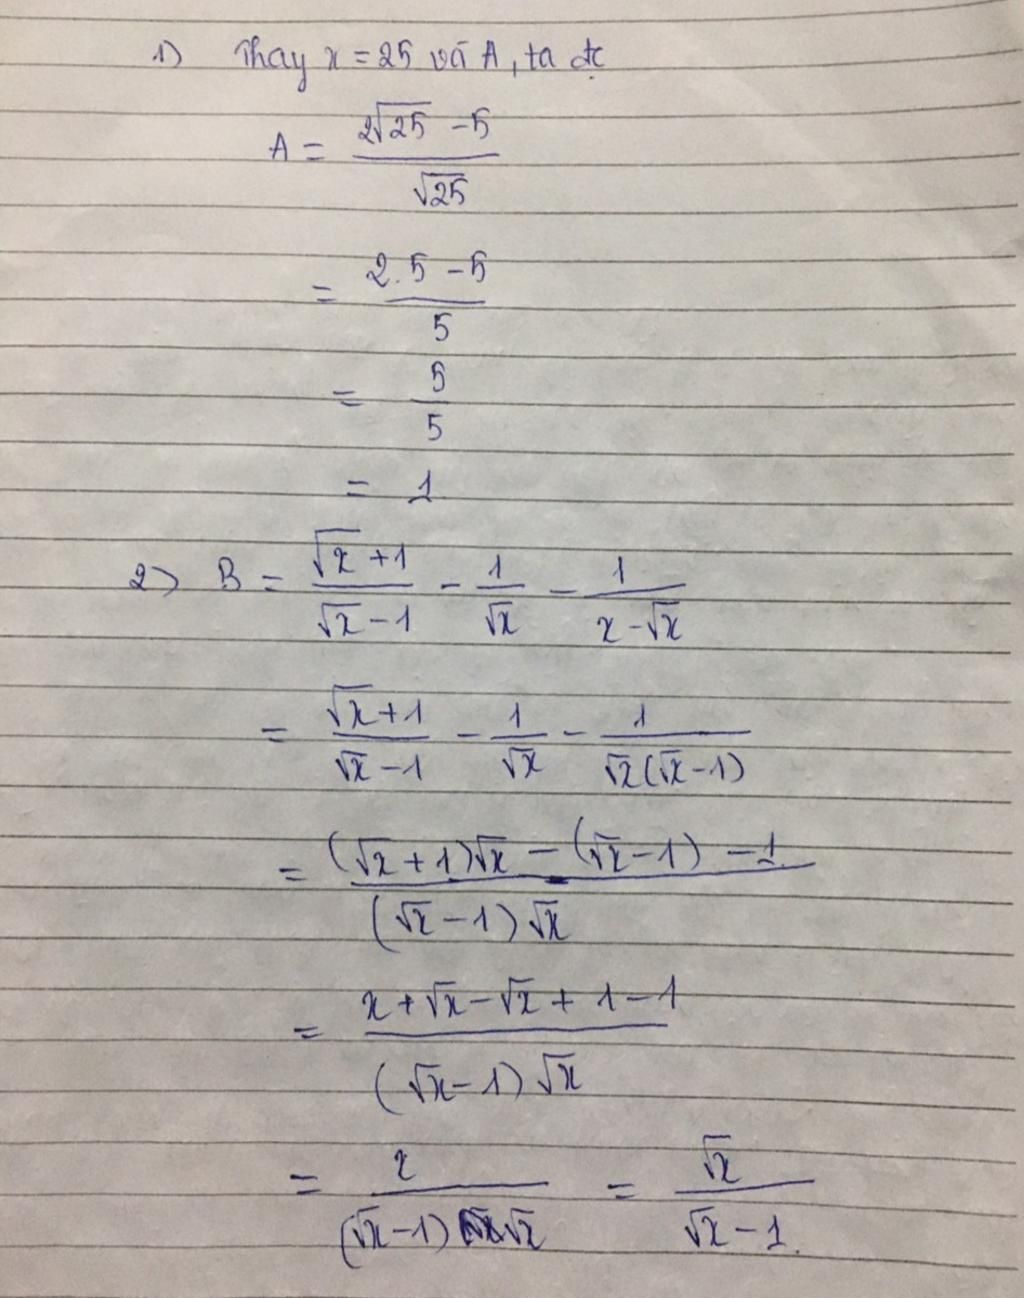 1) Thay x = 25 vào A, ta đc
A = (2√25 - 5)/√25
= (2.5 - 5)/5
= 5/5
= 1
2) B = (√x + 1)/(√x - 1) - 1/√x - 1/(x - √x)
= (√x + 1)/(√x - 1) - 1/√x - 1/(√x(√x - 1))
= ((√x + 1)√x - (√x - 1) - 1)/((√x - 1)√x)
= (x + √x - √x + 1 - 1)/((√x - 1)√x)
= x/((√x - 1)√x) = √x/(√x - 1).